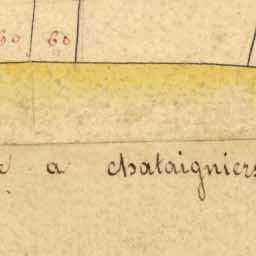 60 60
a chataigniers